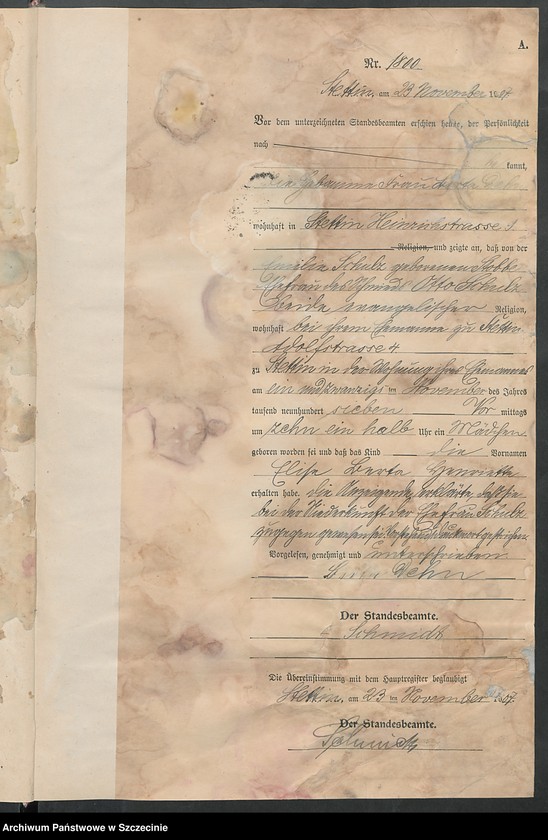 A.
Nr. 1800
Stettin, am 23 November 1907
Vor dem unterzeichneten Standesbeamten erschien heute, der Persönlichkeit
nach
kannt,
die Hebamme Frau
wohnhaft in Stettin Heinrichstrasse
Religion, und zeigte an, daß von der
Emilie Schulz geborenen Stobbe
Ehefrau des Schmieds Otto Schulz
Beide evangelischer Religion,
wohnhaft bei ihrem Ehemanne zu Stettin
Adolfstrasse 4
zu Stettin in der Wohnung ihres Ehemannes
am ein und zwanzigs ten November des Jahres
tausend neunhundert sieben Vor mittags
um zehn ein halb Uhr ein Mädchen
geboren worden sei und daß das Kind die Vornamen
Elise Berta Henriette
erhalten habe. Die Anzeigende erklärte, daß sie
bei der Niederkunft der Ehefrau Schulz
zugegen gewesen sei. Vorstehend Druckwort gestrichen.
Vorgelesen, genehmigt und unterschrieben
Dehn
Der Standesbeamte.
Schmidt
Die Übereinstimmung mit dem Hauptregister beglaubigt
Stettin, am 23 ten November 1907.
Der Standesbeamte.
Archiwum Państwowe w Szczecinie